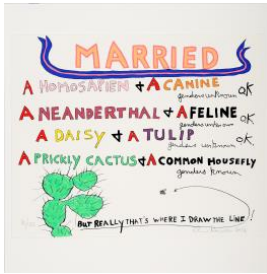 MARRIED
A HOMOSAPIEN & A CANINE
genders unknown OK
A NEANDERTHAL & A FELINE
genders unknown OK
A DAISY & A TULIP
genders unknown OK
A PRICKLY CACTUS & A COMMON HOUSEFLY
genders known
BUT REALLY THAT'S WHERE I DRAW THE LINE!!